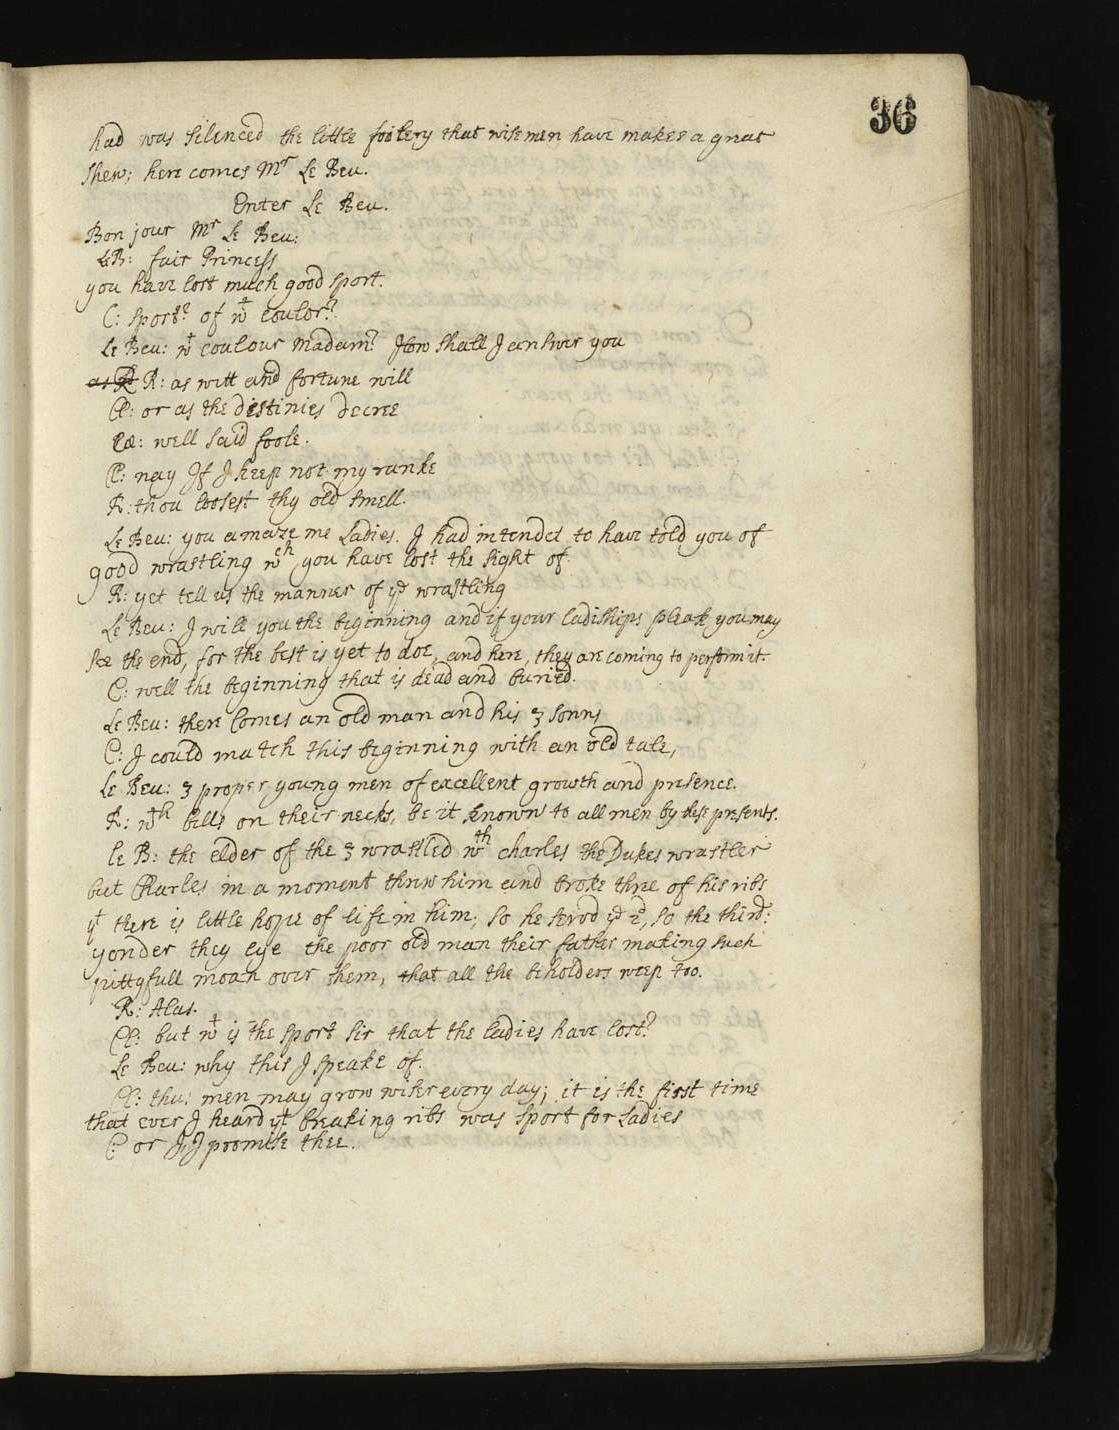 36
had was silenced the little foolery that wise men have makes a great
shew; here comes Mr Le Beu.
Enter Le Beu.
Bon jour Mr Le Beu:
LeB: fair Princess
you have lost much good sport.
C: sport? of wt coulor?
Le Beu: wt coulour madam? How shall I answer you
R: as witt and fortune will
Cl: or as the destinies decree
Cæ: well said foole.
Cl: nay If I keep not my ranke
R: thou loosest thy old smell.
Le Beu: you amaze me Ladies. I had intended to have told you of
good wrastling wch you have lost the sight of.
R: yet tell us the manner of ye wrastling
Le Beu: I will you the beginning and if your ladiships please you may
see the end, for the best is yet to doe, and here, they are coming to perform it.
C: well the beginning that is dead and buried.
Le Beu: there Comes an old man and his 3 sonns
C: I could match this beginning with an old tale,
Le Beu: 3 proper young men of excellent growth and presence.
R: wth bills on their necks, be it known to all men by these presents.
le B: the elder of the 3 wrastled wth charles the Dukes wrastler
but Charles in a moment threw him and broke three of his ribs
yt there is little hope of life in him; so he servd ye 2d, so the third:
yonder they lye the poor old man their father making such
pittyfull moan over them, that all the beholders weep too.
R: Alas.
Cl: but wt is the sport sir that the ladies have lost?
Le Beu: why this I speake of.
Cl: thus men may grow wiser every day; it is the first time
that ever I heard yt breaking ribs was sport for Ladies
C: or I, I promise thee.